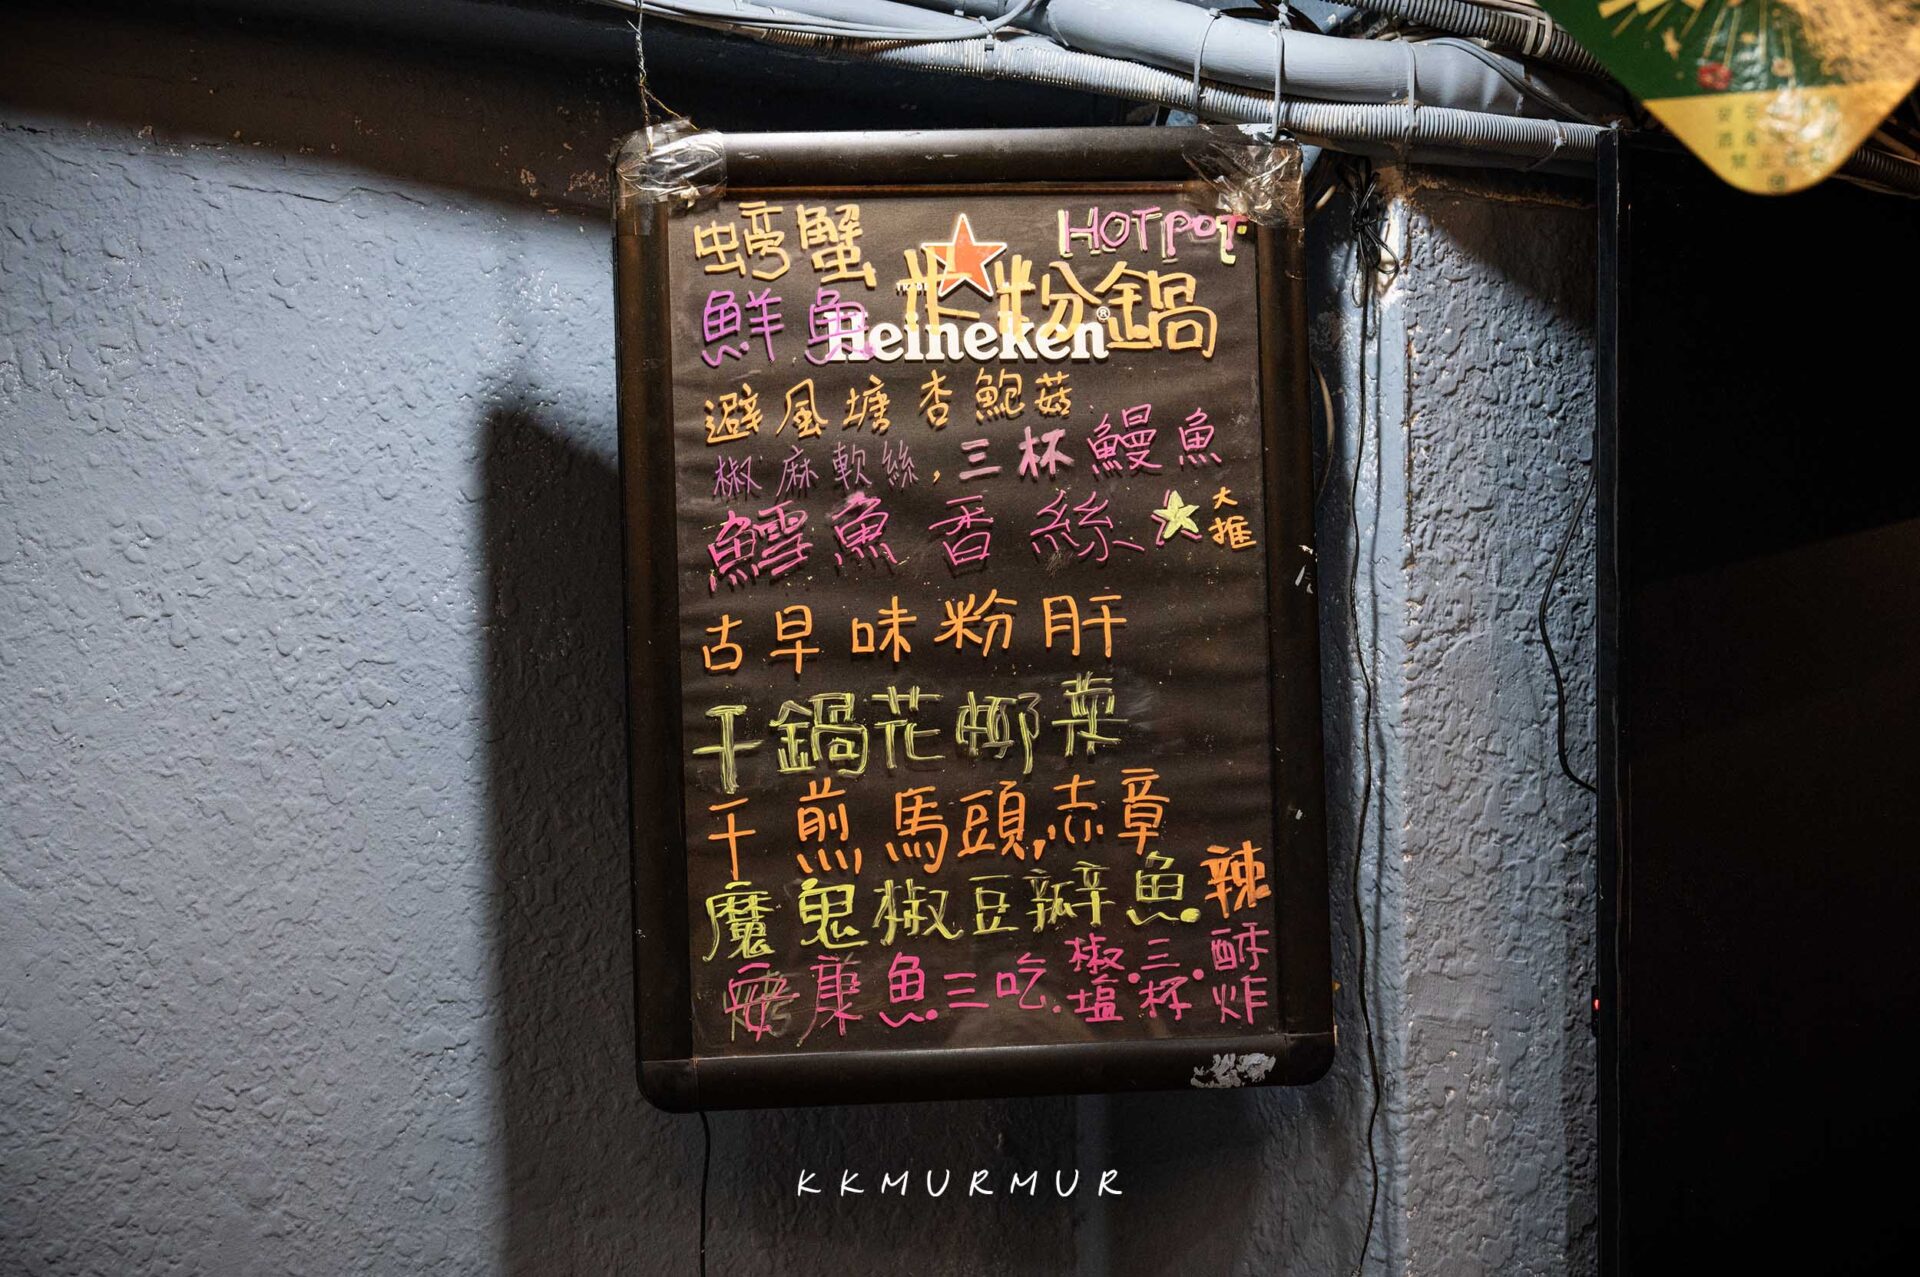 螃蟹 HOTPOT
鮮魚 米粉鍋
Heineken®
避風塘杏鮑菇
椒麻軟絲,三杯鰻魚
鱈魚香絲 大推
古早味粉肝
干鍋花椰菜
干煎馬頭,赤章
魔鬼椒豆瓣魚.辣
安康魚三吃.椒塩.三杯.酥炸
KKMURMUR